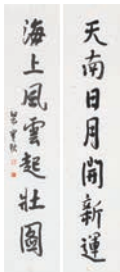 天南日月開新運
海上風雲起壯圖